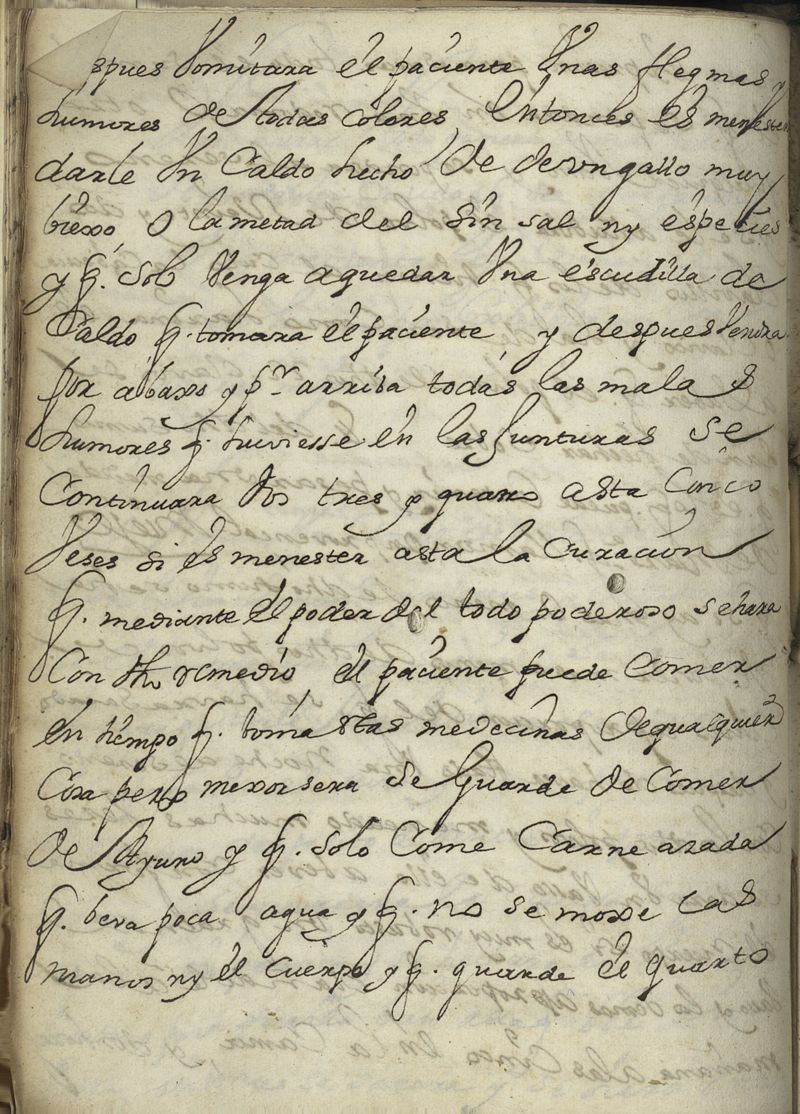 spues Vomitara el paciente Vnas flegmas y
humores de todas colores, entonces es menester
darle Vn Caldo hecho de devngallo muy
biexo O la metad del sin sal ny espeties
y q. sol Venga aquedar Vna escudilla de
Caldo q. tomara el paciente y despues Vendra
por abaxo y pr arriba todas las malas
humores q. huviesse en las Junturas se
Continuara dos tres y quatro asta Cinco
Veses si es menester asta la Curacion
q. mediante el poder del todo poderoso se hara
Con dho remedio, el paciente puede Comer
en tiempo q. toma stas medecinas de qualquier
Cosa pero mexor sera se Guarde de Comer
de Ayuno y q. solo Come Carne azada
q. beva poca agua y q. no se moxe las
manos ny el Cuerpo y q. guarde el quarto